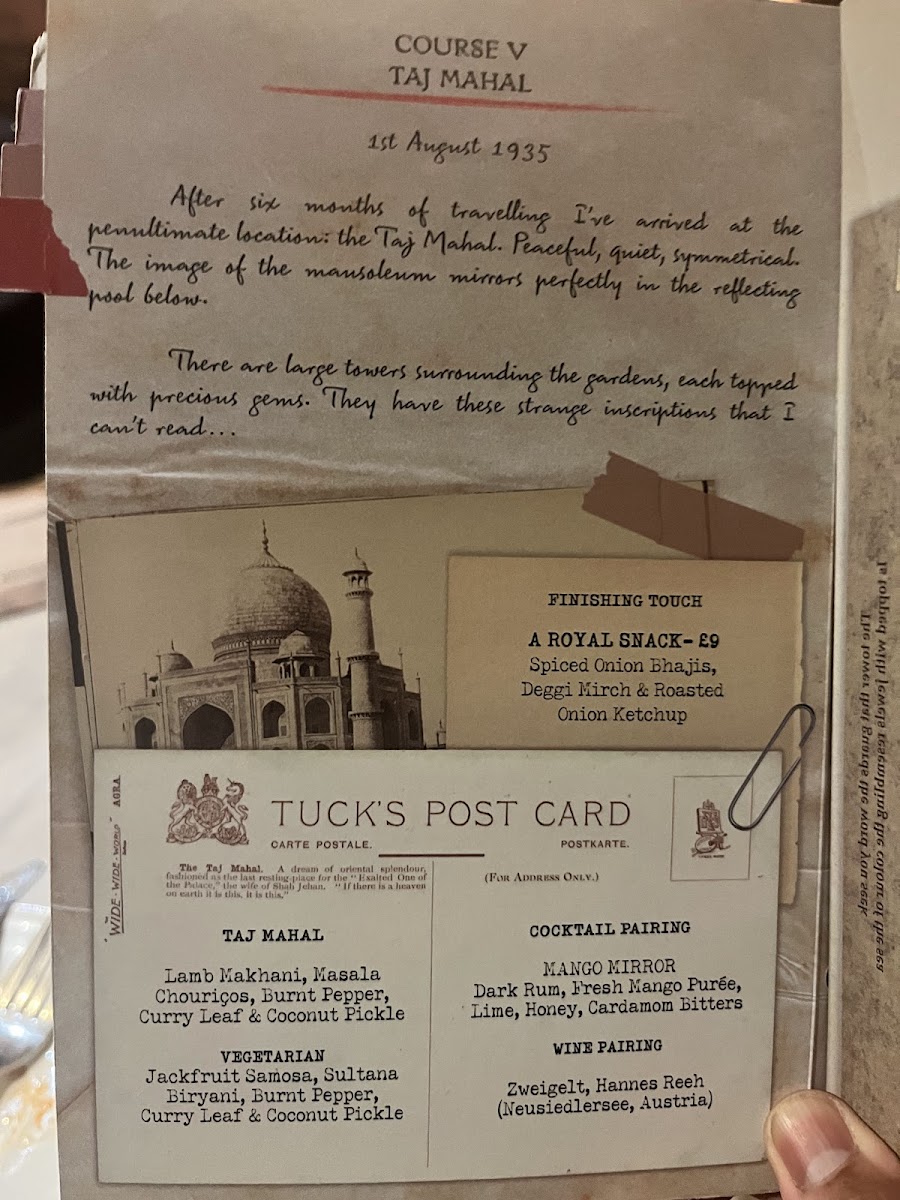 COURSE V
TAJ MAHAL
1st August 1935
After six months of travelling I've arrived at the
penultimate location: the Taj Mahal. Peaceful, quiet, symmetrical.
The image of the mausoleum mirrors perfectly in the reflecting
pool below.
There are large towers surrounding the gardens, each topped
with precious gems. They have these strange inscriptions that I
can't read...
FINISHING TOUCH
A ROYAL SNACK- £9
Spiced Onion Bhajis,
Deggi Mirch & Roasted
Onion Ketchup
"WIDE-WIDE-WORLD" AGRA.
TUCK'S POST CARD
CARTE POSTALE. POSTKARTE.
The Taj Mahal. A dream of oriental splendour,
fashioned as the last resting-place for the "Exalted One of
the Palace," the wife of Shah Jehan. "If there is a heaven
on earth it is this, it is this."
(FOR ADDRESS ONLY.)
TAJ MAHAL
Lamb Makhani, Masala
Chouriços, Burnt Pepper,
Curry Leaf & Coconut Pickle
VEGETARIAN
Jackfruit Samosa, Sultana
Biryani, Burnt Pepper,
Curry Leaf & Coconut Pickle
COCKTAIL PAIRING
MANGO MIRROR
Dark Rum, Fresh Mango Purée,
Lime, Honey, Cardamom Bitters
WINE PAIRING
Zweigelt, Hannes Reeh
(Neusiedlersee, Austria)
The tower that guards the word you seek
Is topped with jewels resembling the colour of the sea